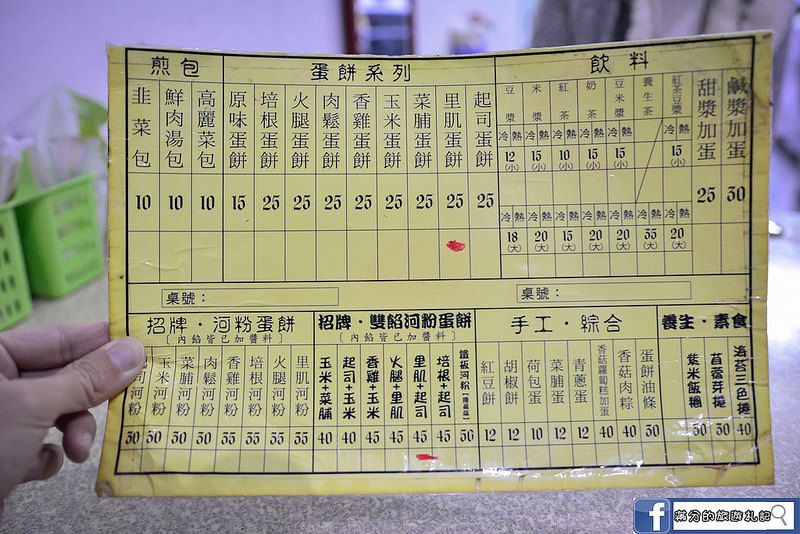 煎包
韭菜包 10
鮮肉湯包 10
高麗菜包 10
蛋餅系列
原味蛋餅 15
培根蛋餅 25
火腿蛋餅 25
肉鬆蛋餅 25
香雞蛋餅 25
玉米蛋餅 25
菜脯蛋餅 25
里肌蛋餅 25
起司蛋餅 25
飲料
豆漿 冷 熱 12(小) 冷 熱 18(大)
米漿 冷 熱 15(小) 冷 熱 20(大)
紅茶 冷 熱 10(小) 冷 熱 15(大)
奶茶 冷 熱 15(小) 冷 熱 20(大)
豆米漿 冷 熱 15(小) 冷 熱 20(大)
養生茶 冷 熱 35(大)
紅茶豆漿 冷 熱 15(小) 冷 熱 20(大)
甜漿加蛋 25
鹹漿加蛋 30
桌號：
桌號：
招牌·河粉蛋餅
(內餡皆已加醬料)
司河粉 30
玉米河粉 30
菜脯河粉 30
肉鬆河粉 35
香雞河粉 35
培根河粉 35
火腿河粉 35
里肌河粉 35
招牌·雙餡河粉蛋餅
(內餡皆已加醬料)
玉米+菜脯 40
起司+玉米 40
香雞+玉米 45
火腿+里肌 45
里肌+起司 45
培根+起司 45
鐵板河粉 50
手工·綜合
紅豆餅 12
胡椒餅 12
荷包蛋 10
菜脯蛋 12
青蔥蛋 12
香菇蘿蔔糕加蛋 40
香菇肉粽 40
蛋餅油條 30
養生·素食
紫米飯糰 30
苜蓿芽捲 30
海苔三色捲 40
f 滿分的旅遊札記